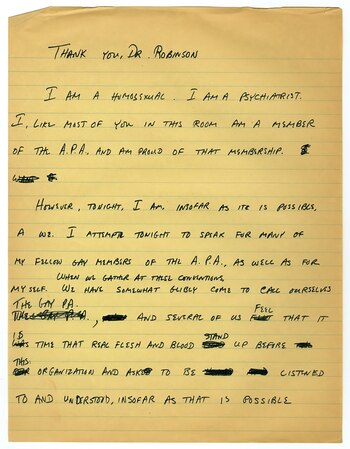 THANK YOU, DR. ROBINSON
I AM A HOMOSEXUAL. I AM A PSYCHIATRIST.
I, LIKE MOST OF YOU IN THIS ROOM AM A MEMBER
OF THE A.P.A., AND AM PROUD OF THAT MEMBERSHIP.
HOWEVER, TONIGHT, I AM, INSOFAR AS IT IS POSSIBLE,
A WE. I ATTEMPT TONIGHT TO SPEAK FOR MANY OF
MY FELLOW GAY MEMBERS OF THE A.P.A., AS WELL AS FOR
WHEN WE GATHER AT THESE CONVENTIONS,
MYSELF. WE HAVE SOMEWHAT GLIBLY COME TO CALL OURSELVES
THE GAY PA.
, AND SEVERAL OF US FEEL THAT IT
IS TIME THAT REAL FLESH AND BLOOD STAND UP BEFORE
THIS
ORGANIZATION AND ASK TO BE LISTENED
TO AND UNDERSTOOD, INSOFAR AS THAT IS POSSIBLE